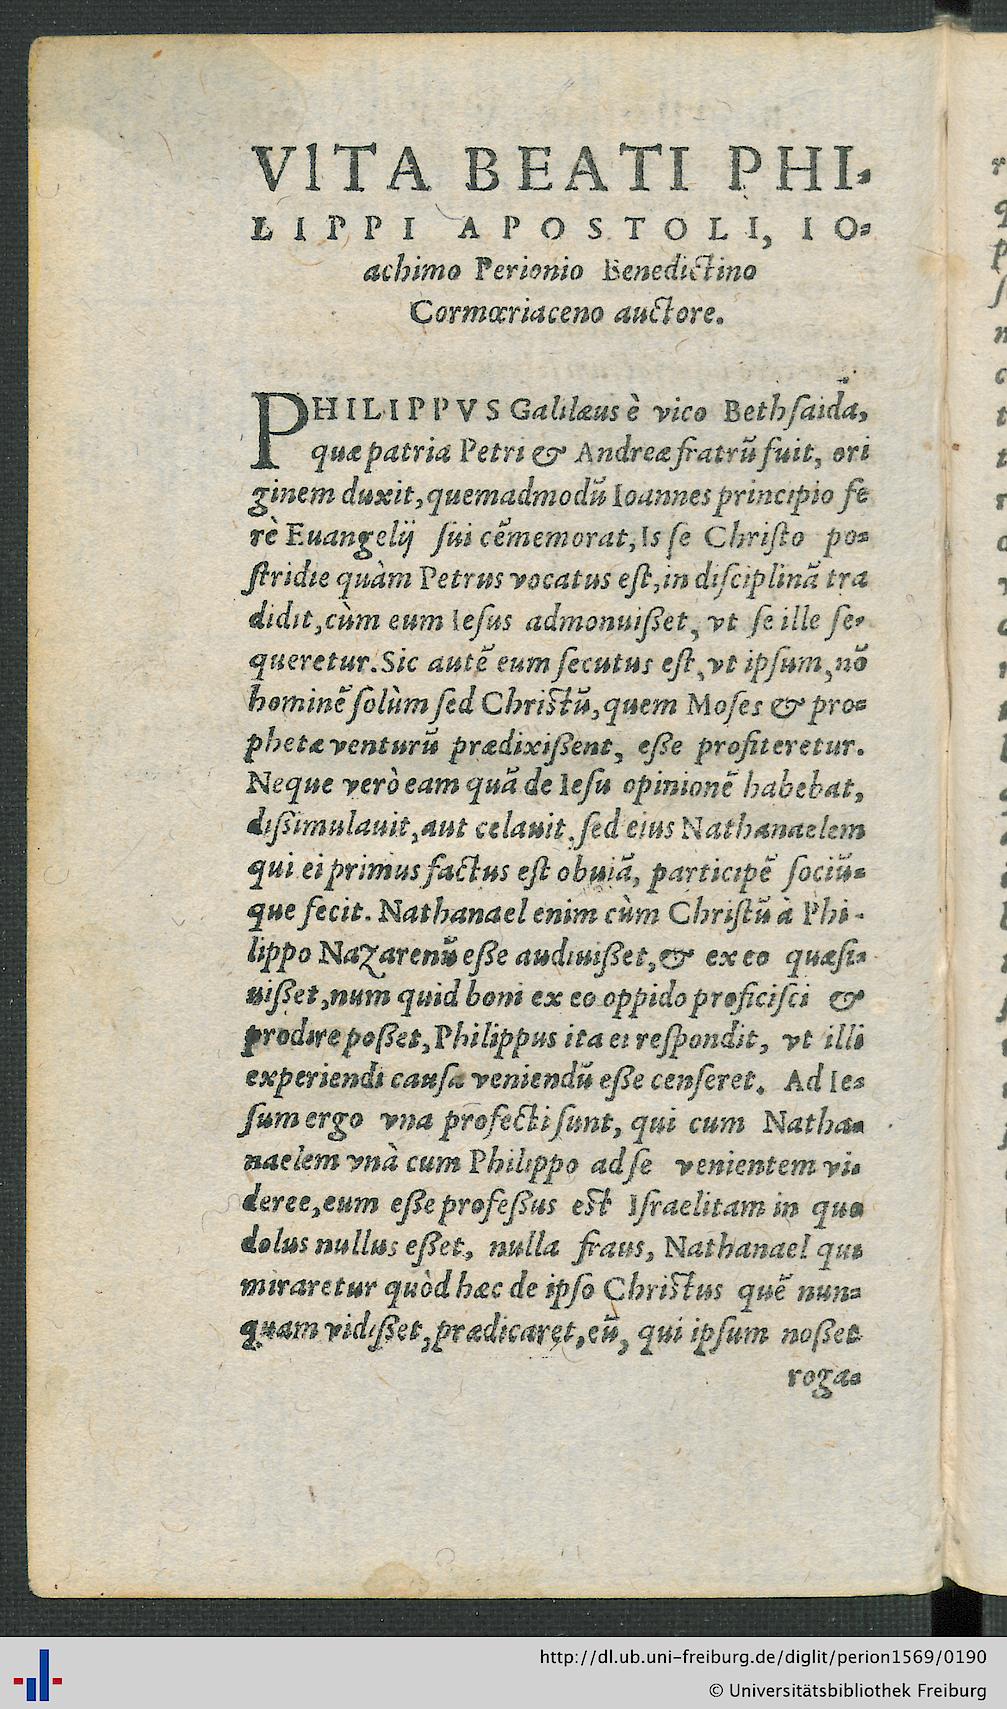 VITA BEATI PHI-
LIPPI APOSTOLI, IO-
achimo Perionio Benedictino
Cormœriaceno auctore.
PHILIPPVS Galilæus è vico Bethſaida,
quæ patria Petri & Andreæ fratrũ fuit, ori
ginem duxit, quemadmodũ Ioannes principio fe
rè Euangelij ſui cẽmemorat, Is ſe Chriſto po-
ſtridie quàm Petrus vocatus eſt, in diſciplinã tra
didit, cùm eum Ieſus admonuißet, vt ſe ille ſe-
queretur. Sic autẽ eum ſecutus eſt, vt ipſum, nõ
hominẽ ſolùm ſed Chriſtũ, quem Moſes & pro-
phetæ venturũ prædixißent, eße profiteretur.
Neque verò eam quã de Ieſu opinionẽ habebat,
dißimulauit, aut celauit, ſed eius Nathanaelem
qui ei primus factus eſt obuiã, participẽ ſociũ-
que fecit. Nathanael enim cùm Chriſtũ à Phi-
lippo Nazarenũ eße audiuißet, & ex eo quæſi-
uißet, num quid boni ex eo oppido proficiſci &
prodire poßet, Philippus ita ei reſpondit, vt illi
experiendi cauſa veniendũ eße cenſeret. Ad Ie-
ſum ergo vna profecti ſunt, qui cum Natha-
naelem vnà cum Philippo ad ſe venientem vi-
deree, eum eße profeßus eſt Iſraelitam in quo
dolus nullus eßet, nulla fraus, Nathanael qui
miraretur quòd hæc de ipſo Chriſtus quẽ nun-
quam vidißet, prædicaret, eũ, qui ipſum noßet
roga-
http://dl.ub.uni-freiburg.de/diglit/perion1569/0190
© Universitätsbibliothek Freiburg